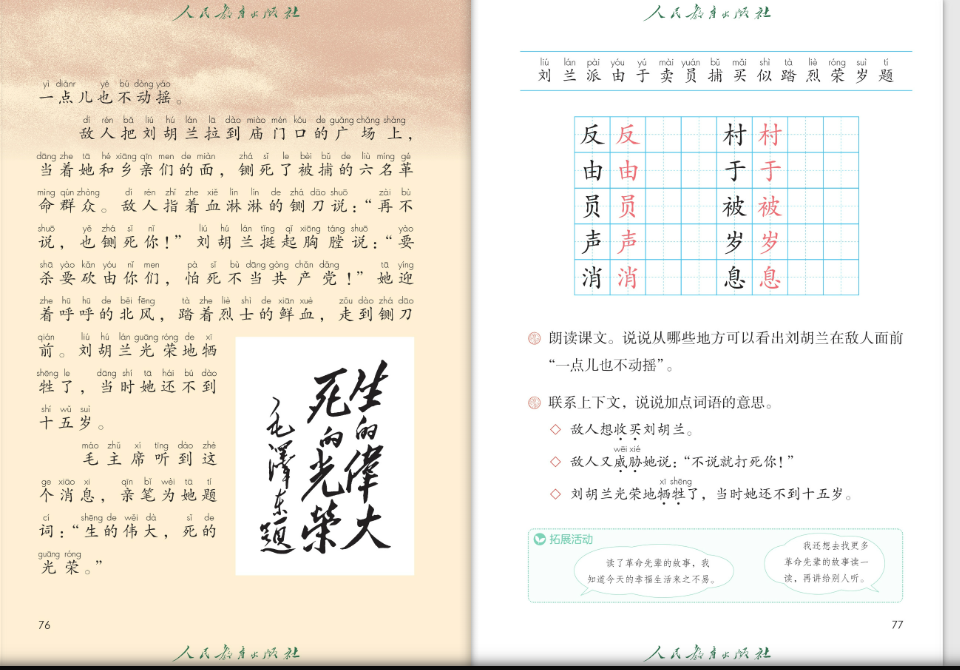 人民教育出版社
yì diǎnr yě bù dòng yáo
一点儿也不动摇。
dí rén bǎ liú hú lán lā dào miào mén kǒu de guǎng chǎng shàng
敌人把刘胡兰拉到庙门口的广场上，
dāng zhe tā hé xiāng qīn men de miàn zhá sǐ le bèi bǔ de liù míng gé
当着她和乡亲们的面，铡死了被捕的六名革
mìng qún zhòng dí rén zhǐ zhe xiě lín lín de zhá dāo shuō zài bù
命群众。敌人指着血淋淋的铡刀说：“再不
shuō yě zhá sǐ nǐ liú hú lán tǐng qǐ xiōng táng shuō yào
说，也铡死你！”刘胡兰挺起胸膛说：“要
shā yào kǎn yóu nǐ men pà sǐ bù dāng gòng chǎn dǎng tā yíng
杀要砍由你们，怕死不当共产党！”她迎
zhe hū hū de běi fēng tà zhe liè shì de xiān xuè zǒu dào zhá dāo
着呼呼的北风，踏着烈士的鲜血，走到铡刀
qián liú hú lán guāng róng de xī
前。刘胡兰光荣地牺
shēng le dāng shí tā hái bú dào
牲了，当时她还不到
shí wǔ suì
十五岁。
máo zhǔ xí tīng dào zhè
毛主席听到这
ge xiāo xi qīn bǐ wèi tā tí
个消息，亲笔为她题
cí shēng de wěi dà sǐ de
词：“生的伟大，死的
guāng róng
光荣。”
生的偉大
死的光榮
毛澤东题
76
人民教育出版社
人民教育出版社
liú lán pài yóu yú mài yuán bǔ mǎi sì tà liè róng suì tí
刘兰派由于卖员捕买似踏烈荣岁题
反反 村村
由由 于于
员员 被被
声声 岁岁
消消 息息
朗读课文。说说从哪些地方可以看出刘胡兰在敌人面前
“一点儿也不动摇”。
联系上下文，说说加点词语的意思。
◇ 敌人想收买刘胡兰。
wēi xié
◇ 敌人又威胁她说：“不说就打死你！”
xī shēng
◇ 刘胡兰光荣地牺牲了，当时她还不到十五岁。
拓展活动
读了革命先辈的故事，我
知道今天的幸福生活来之不易。
我还想去找更多
革命先辈的故事读一
读，再讲给别人听。
77
人民教育出版社